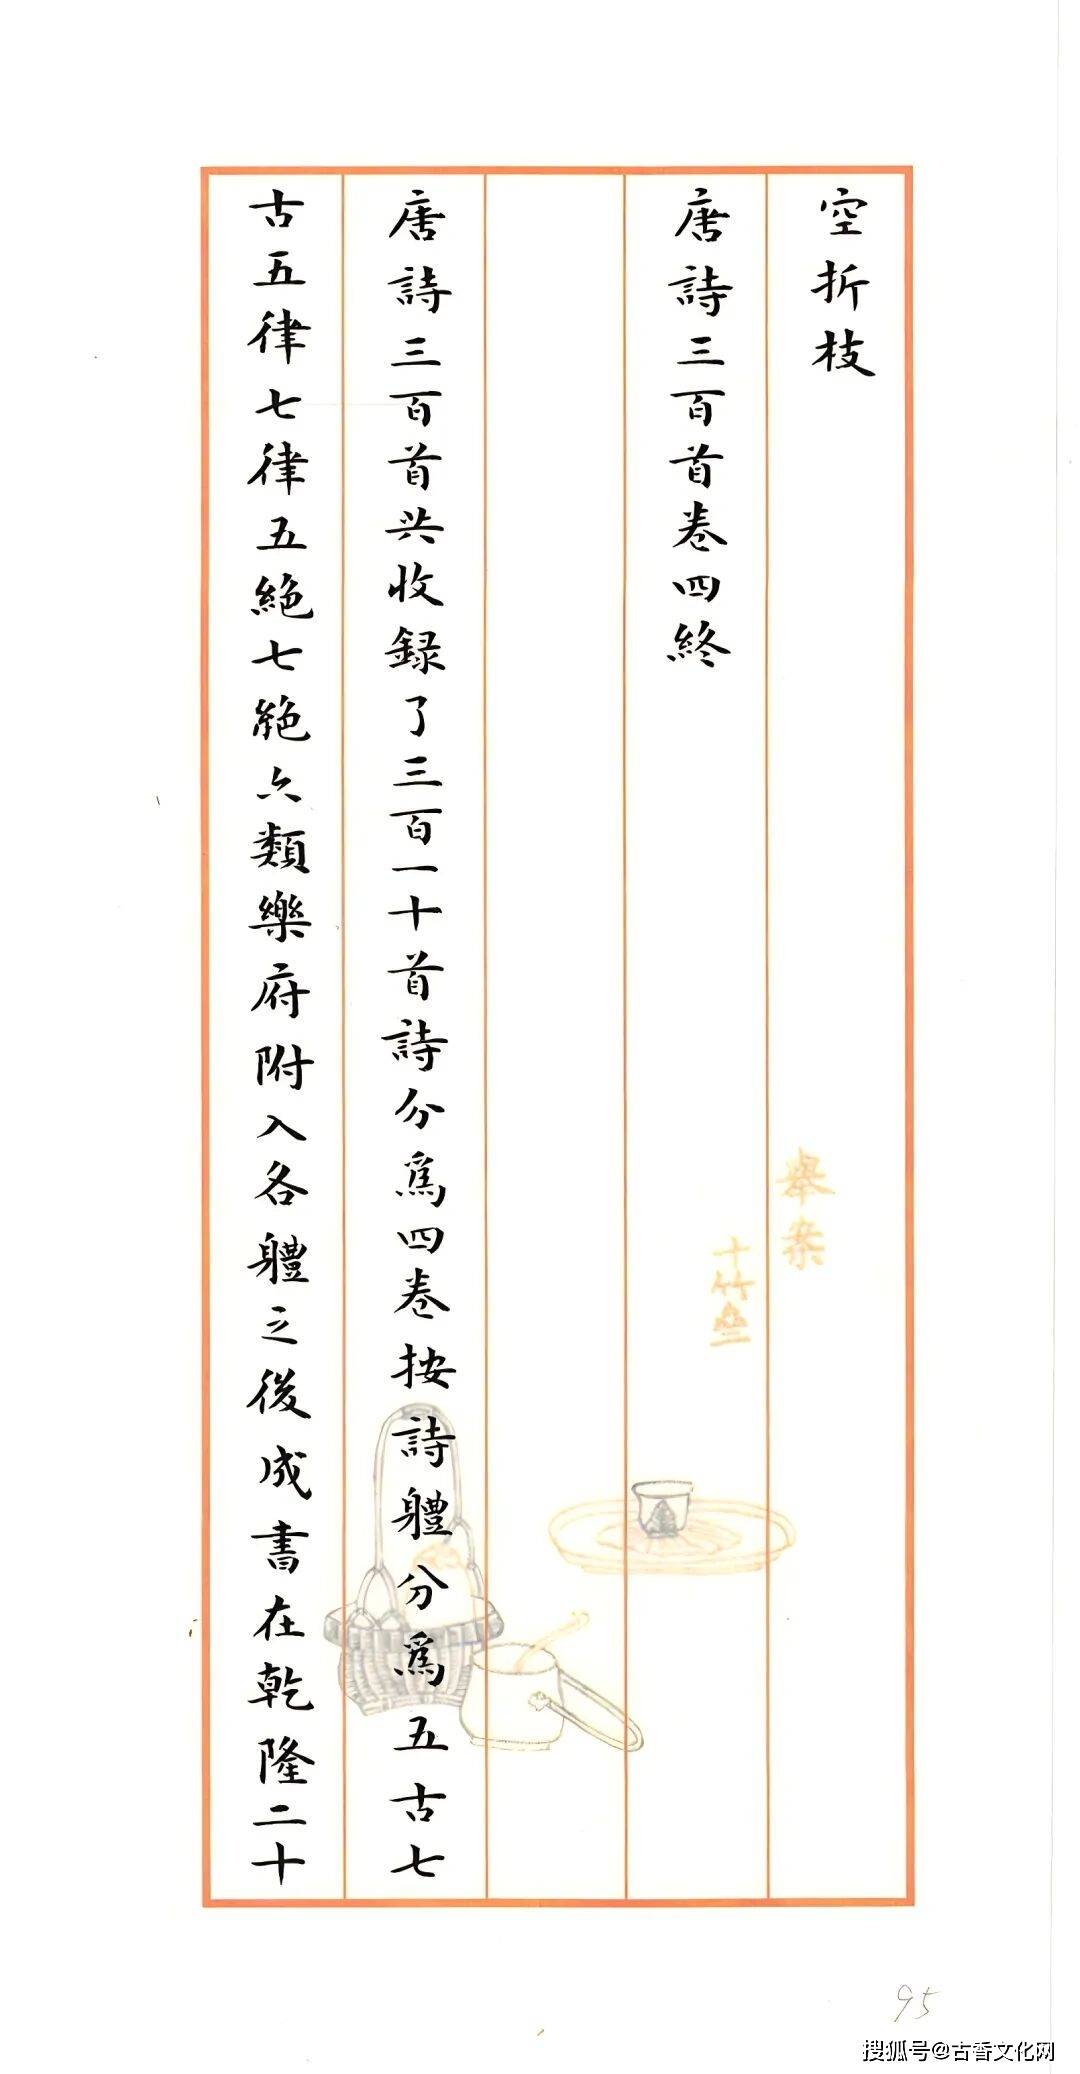 空折枝
唐詩三百首卷四終
唐詩三百首共收録了三百一十首詩分爲四卷按詩體分爲五古七
古五律七律五絶七絶六類樂府附入各體之後成書在乾隆二十
舉案
十竹齋
95
搜狐号@古香文化网